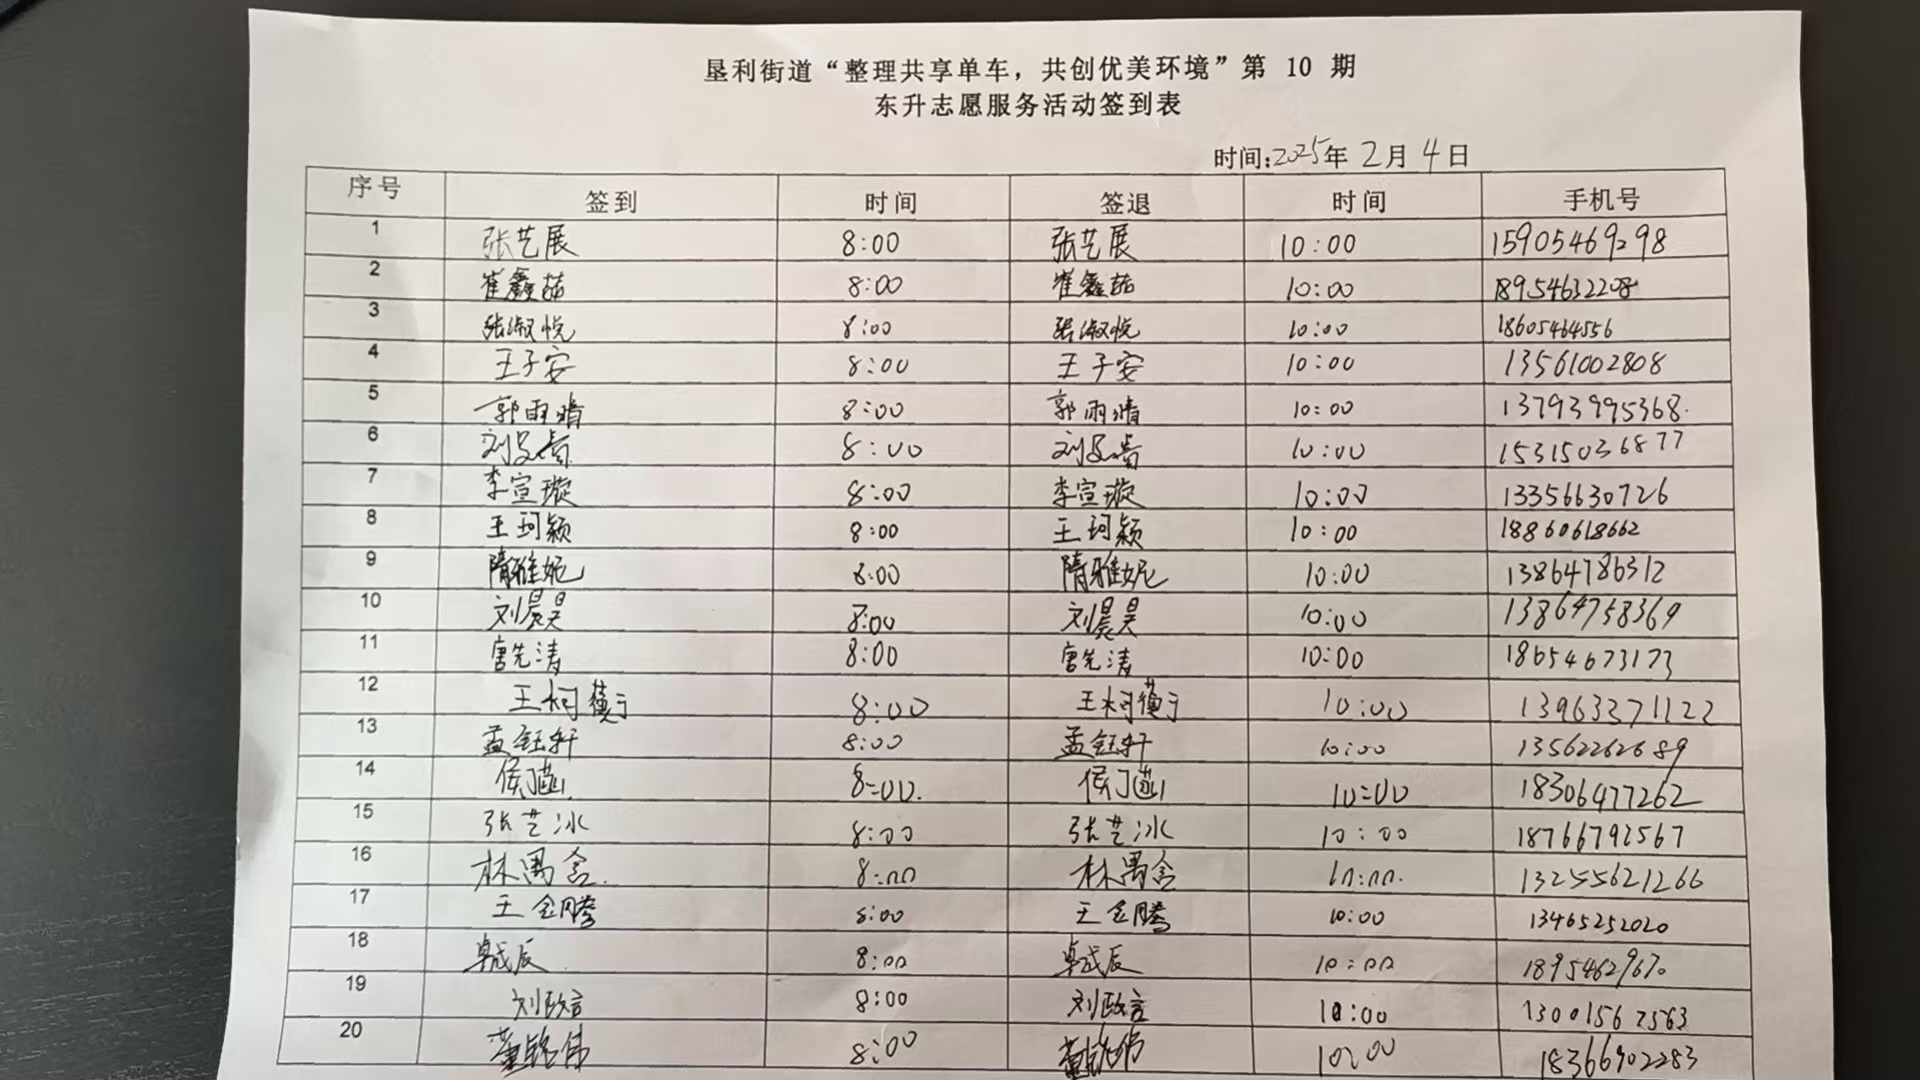 垦利街道“整理共享单车，共创优美环境”第 10 期
东升志愿服务活动签到表
时间:2025年 2月 4日
序号 签到 时间 签退 时间 手机号
1 张艺展 8:00 张艺展 10:00 15905469298
2 崔鑫茹 8:00 崔鑫茹 10:00 18954632208
3 张淑悦 8:00 张淑悦 10:00 18605464556
4 王子安 8:00 王子安 10:00 13561002808
5 郭雨晴 8:00 郭雨晴 10:00 13793995368.
6 刘 8:00 刘 10:00 15315036877
7 李宣璇 8:00 李宣璇 10:00 13356630726
8 王珂颖 8:00 王珂颖 10:00 18860618662
9 隋雅妮 8:00 隋雅妮 10:00 13864786312
10 刘晨昊 8:00 刘晨昊 10:00 13864758369
11 唐先涛 8:00 唐先涛 10:00 18654673173
12 王柯 8:00 王柯 10:00 13963371122
13 孟钰轩 8:00 孟钰轩 10:00 13562262689
14 侯 8:00. 侯 10:00 18306477262
15 张艺冰 8:00 张艺冰 10:00 18766792567
16 林禺含. 8:00 林禺含 10:00. 13255621266
17 王金腾 8:00 王金腾 10:00 13465252020
18 卓成辰 8:00 卓成辰 10:00 18954629670
19 刘政言 8:00 刘政言 10:00 13001567563
20 董铭伟 8:00 董铭伟 10:00 18366902283